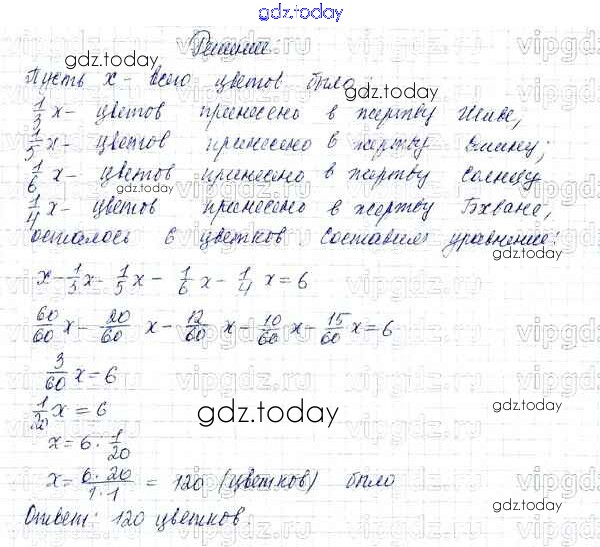 gdz.today
Решение:
gdz.today
Пусть x - всего цветов было
1/3 x - цветов принесено в жертву Шиве,
1/5 x - цветов принесено в жертву Вишну;
1/6 x - цветов принесено в жертву Солнцу
1/4 x - цветов принесено в жертву Бхване,
осталось 6 цветков. Составим уравнение:
x - 1/3 x - 1/5 x - 1/6 x - 1/4 x = 6
60/60 x - 20/60 x - 12/60 x - 10/60 x - 15/60 x = 6
3/60 x = 6
1/20 x = 6
gdz.today
x = 6 : 1/20
x = 6·20/1·1 = 120 (цветков) было
Ответ: 120 цветков.
gdz.today
gdz.today
gdz.today
gdz.today
gdz.today
gdz.today
vipgdz.ru